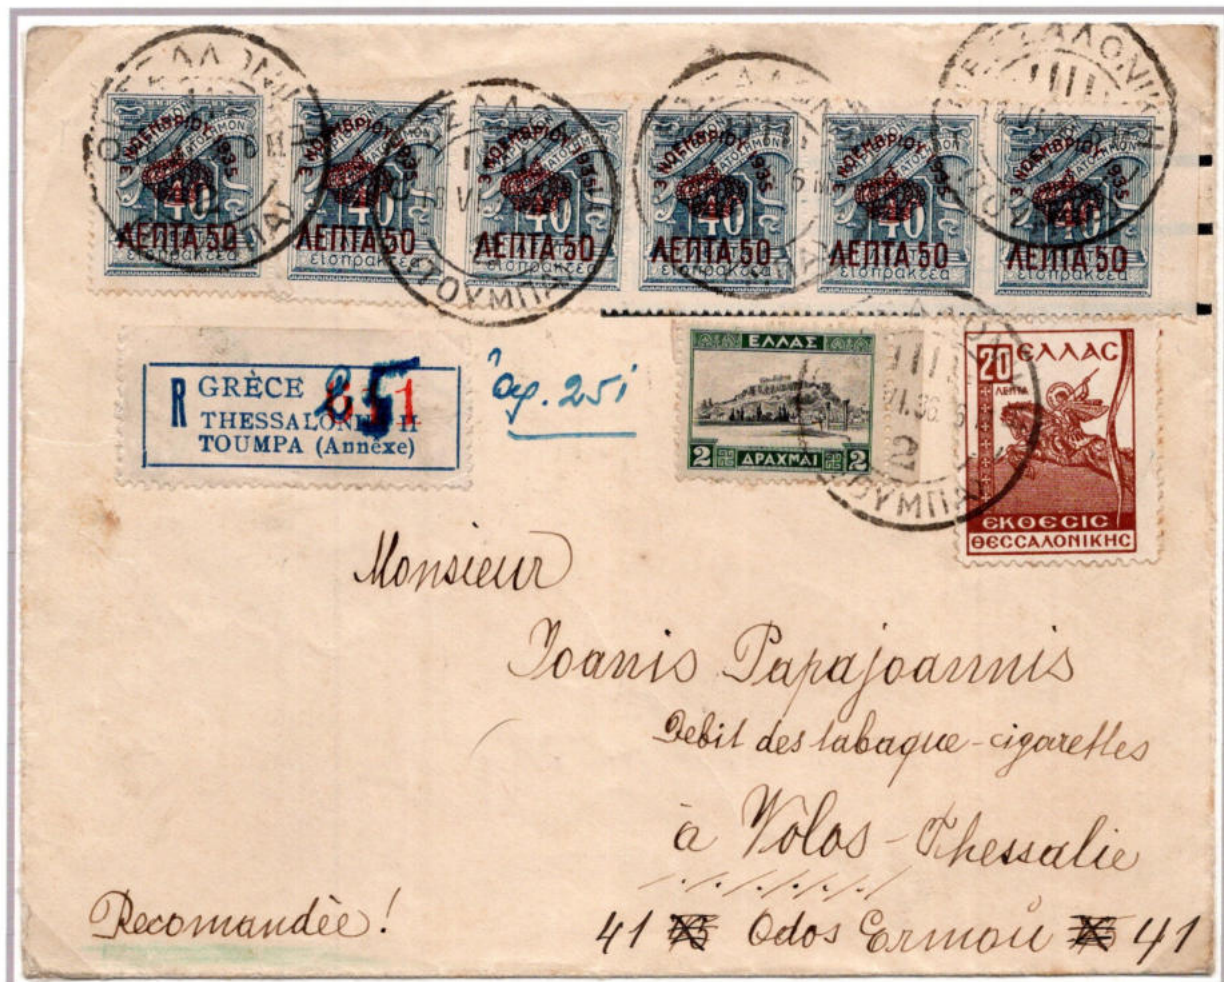 3 ΝΟΕΜΒΡΙΟΥ 1935
40
ΛΕΠΤΑ 50
εισπρακτέα
3 ΝΟΕΜΒΡΙΟΥ 1935
40
ΛΕΠΤΑ 50
εισπρακτέα
3 ΝΟΕΜΒΡΙΟΥ 1935
40
ΛΕΠΤΑ 50
εισπρακτέα
3 ΝΟΕΜΒΡΙΟΥ 1935
40
ΛΕΠΤΑ 50
εισπρακτέα
3 ΝΟΕΜΒΡΙΟΥ 1935
40
ΛΕΠΤΑ 50
εισπρακτέα
3 ΝΟΕΜΒΡΙΟΥ 1935
40
ΛΕΠΤΑ 50
εισπρακτέα
ΘΕΣΣΑΛΟΝΙΚΗ
ΤΟΥΜΠΑ
R GRÈCE
THESSALONIQUE II
TOUMPA (Annéxe)
ἀρ. 251
ΕΛΛΑΣ
2 ΔΡΑΧΜΑΙ 2
20 ΕΛΛΑC
ΛΕΠΤΑ
ΕΚΘΕCΙC
ΘΕCCΑΛΟΝΙΚΗC
Monsieur
Ioanis Papajoannis
Debit des tabaque-cigarettes
à Volos-Thessalie
Recomandée!
41 Odos Ermoú 41